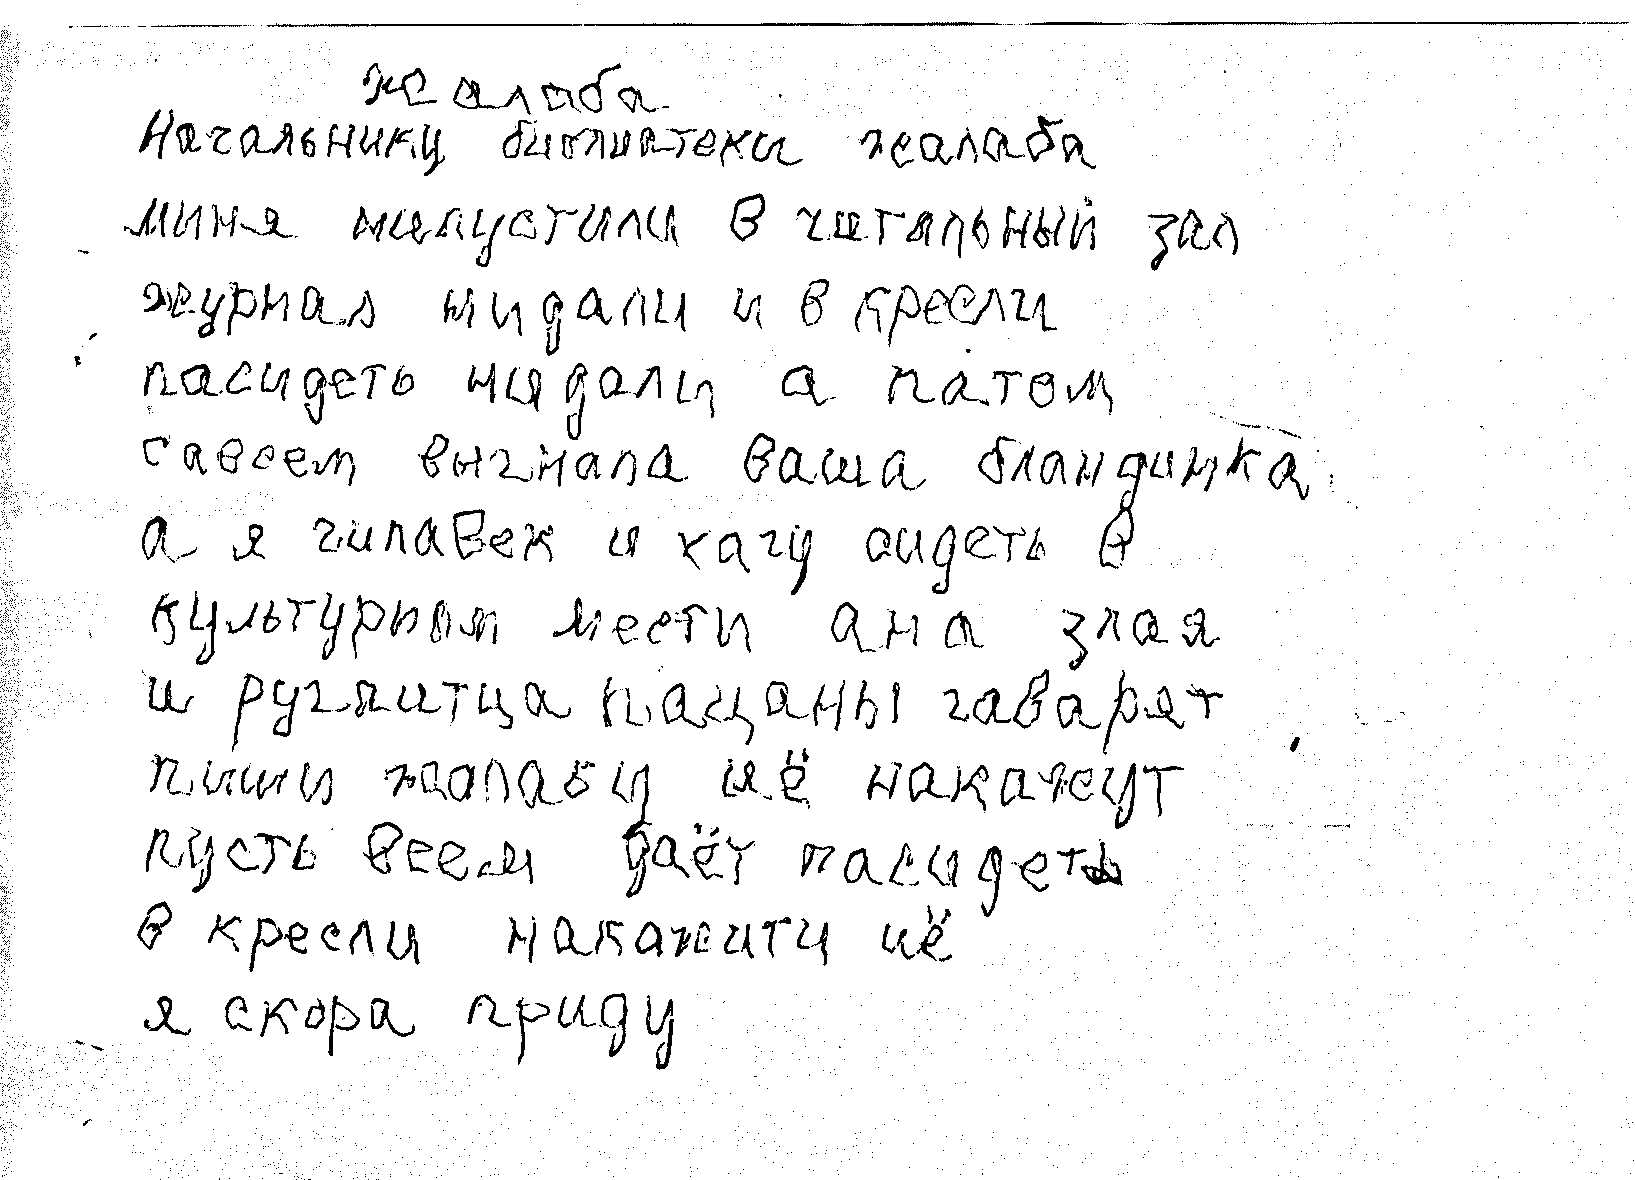 жалаба
Начальнику библиатеки жалаба
миня нипустили в читальный зал
журнал нидали и в кресли
пасидеть нидали а патом
савсем выгнала ваша бландинка
а я чилавек и хачу сидеть в
культурном мести ана злая
и ругяитца пацаны гаварят
пиши жалабу иё накажут
пусть всем даёт пасидеть
в кресли накажити иё
я скора приду